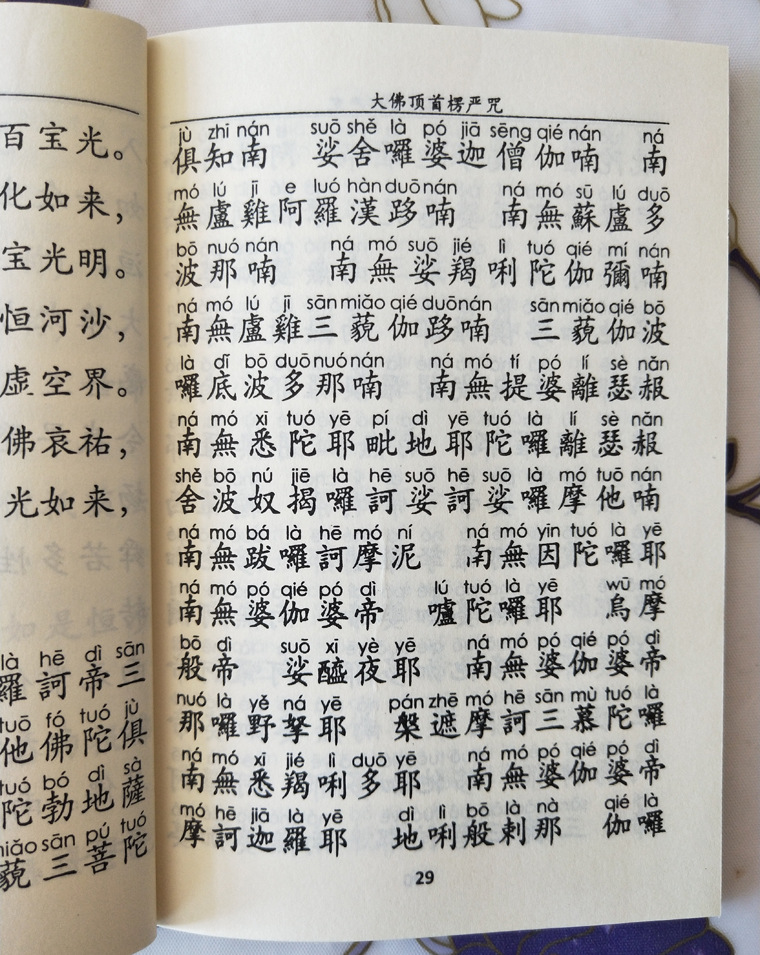 百宝光。
化如来，
宝光明。
恒河沙，
虚空界。
佛哀祐，
光如来，
là hē dì sān
羅訶帝三
tuō fó tuó jù
他佛陀俱
tuó bó dì sà
陀勃地薩
miǎo sān pú tuó
藐三菩陀
大佛顶首楞严咒
jù zhī nán suō shě là pó jiā sēng qié nán ná
俱知南 娑舍囉婆迦僧伽喃 南
mó lú jī e luó hàn duō nán ná mó sū lú duō
無盧雞阿羅漢跢喃 南無蘇盧多
bō nuó nán ná mó suō jié lì tuó qié mí nán
波那喃 南無娑羯唎陀伽彌喃
ná mó lú jī sān miǎo qié duō nán sān miǎo qié bō
南無盧雞三藐伽跢喃 三藐伽波
là dǐ bō duō nuó nán ná mó tí pó lí sè nǎn
囉底波多那喃 南無提婆離瑟赧
ná mó xī tuó yē pí dì yē tuó là lí sè nǎn
南無悉陀耶毗地耶陀囉離瑟赧
shě bō nú jiē là hē suō hē suō là mó tuō nán
舍波奴揭囉訶娑訶娑囉摩他喃
ná mó bá là hē mó ní ná mó yīn tuó là yē
南無跋囉訶摩泥 南無因陀囉耶
ná mó pó qié pó dì lú tuó là yē wū mó
南無婆伽婆帝 嚧陀囉耶 烏摩
bō dì suō xī yè yē ná mó pó qié pó dì
般帝 娑醯夜耶 南無婆伽婆帝
nuó là yě ná yē pán zhē mó hē sān mù tuó là
那囉野拏耶 槃遮摩訶三慕陀囉
ná mó xī jié lì duō yē ná mó pó qié pó dì
南無悉羯唎多耶 南無婆伽婆帝
mó hē jiā là yē dì lì bō là nà qié là
摩訶迦羅耶 地唎般剌那 伽囉
29